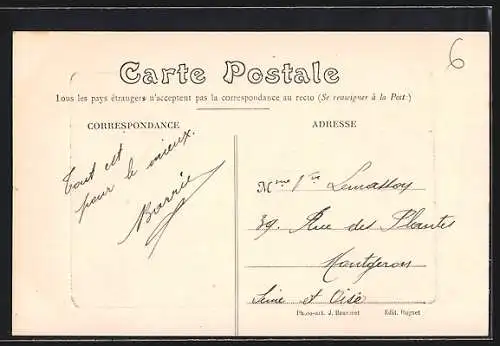 6
Carte Postale
Tous les pays étrangers n'acceptent pas la correspondance au recto (Se renseigner à la Poste)
CORRESPONDANCE
ADRESSE
Tout est
pour le mieux.
Barrié
Mme Vve Lemattoy
39. Rue des Plantes
Montgeron
Seine et Oise
Photo-art. J. Edit. Huguet